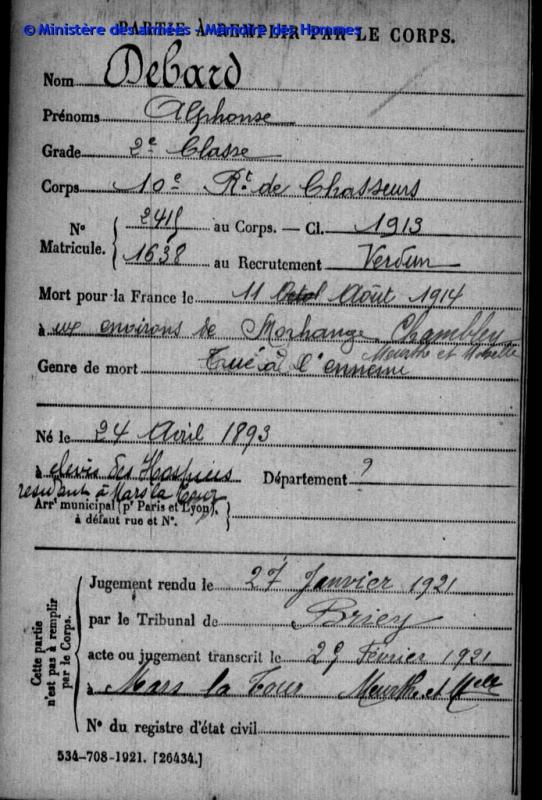 PARTIE À REMPLIR PAR LE CORPS.
© Ministère des armées - Mémoire des Hommes
Nom Debard
Prénoms Alphonse
Grade 2e Classe
Corps 10e Rt de Chasseurs
N° Matricule. { 2415 au Corps. — Cl. 1913
1638 au Recrutement Verdun
Mort pour la France le 11 Août 1914
à ux environs de Morhange Chambley
Meurthe et Moselle
Genre de mort Tué à l'ennemi
Né le 24 Avril 1893
à élevé des Hospices Département ?
résidant à Mars la Tour
Arrt municipal (pr Paris et Lyon), à défaut rue et N°. }
Cette partie n'est pas à remplir par le Corps. {
Jugement rendu le 27 Janvier 1921
par le Tribunal de Briey
acte ou jugement transcrit le 29 Février 1921
à Mars la Tour Meurthe et Mlle
N° du registre d'état civil
534-708-1921. [26434.]